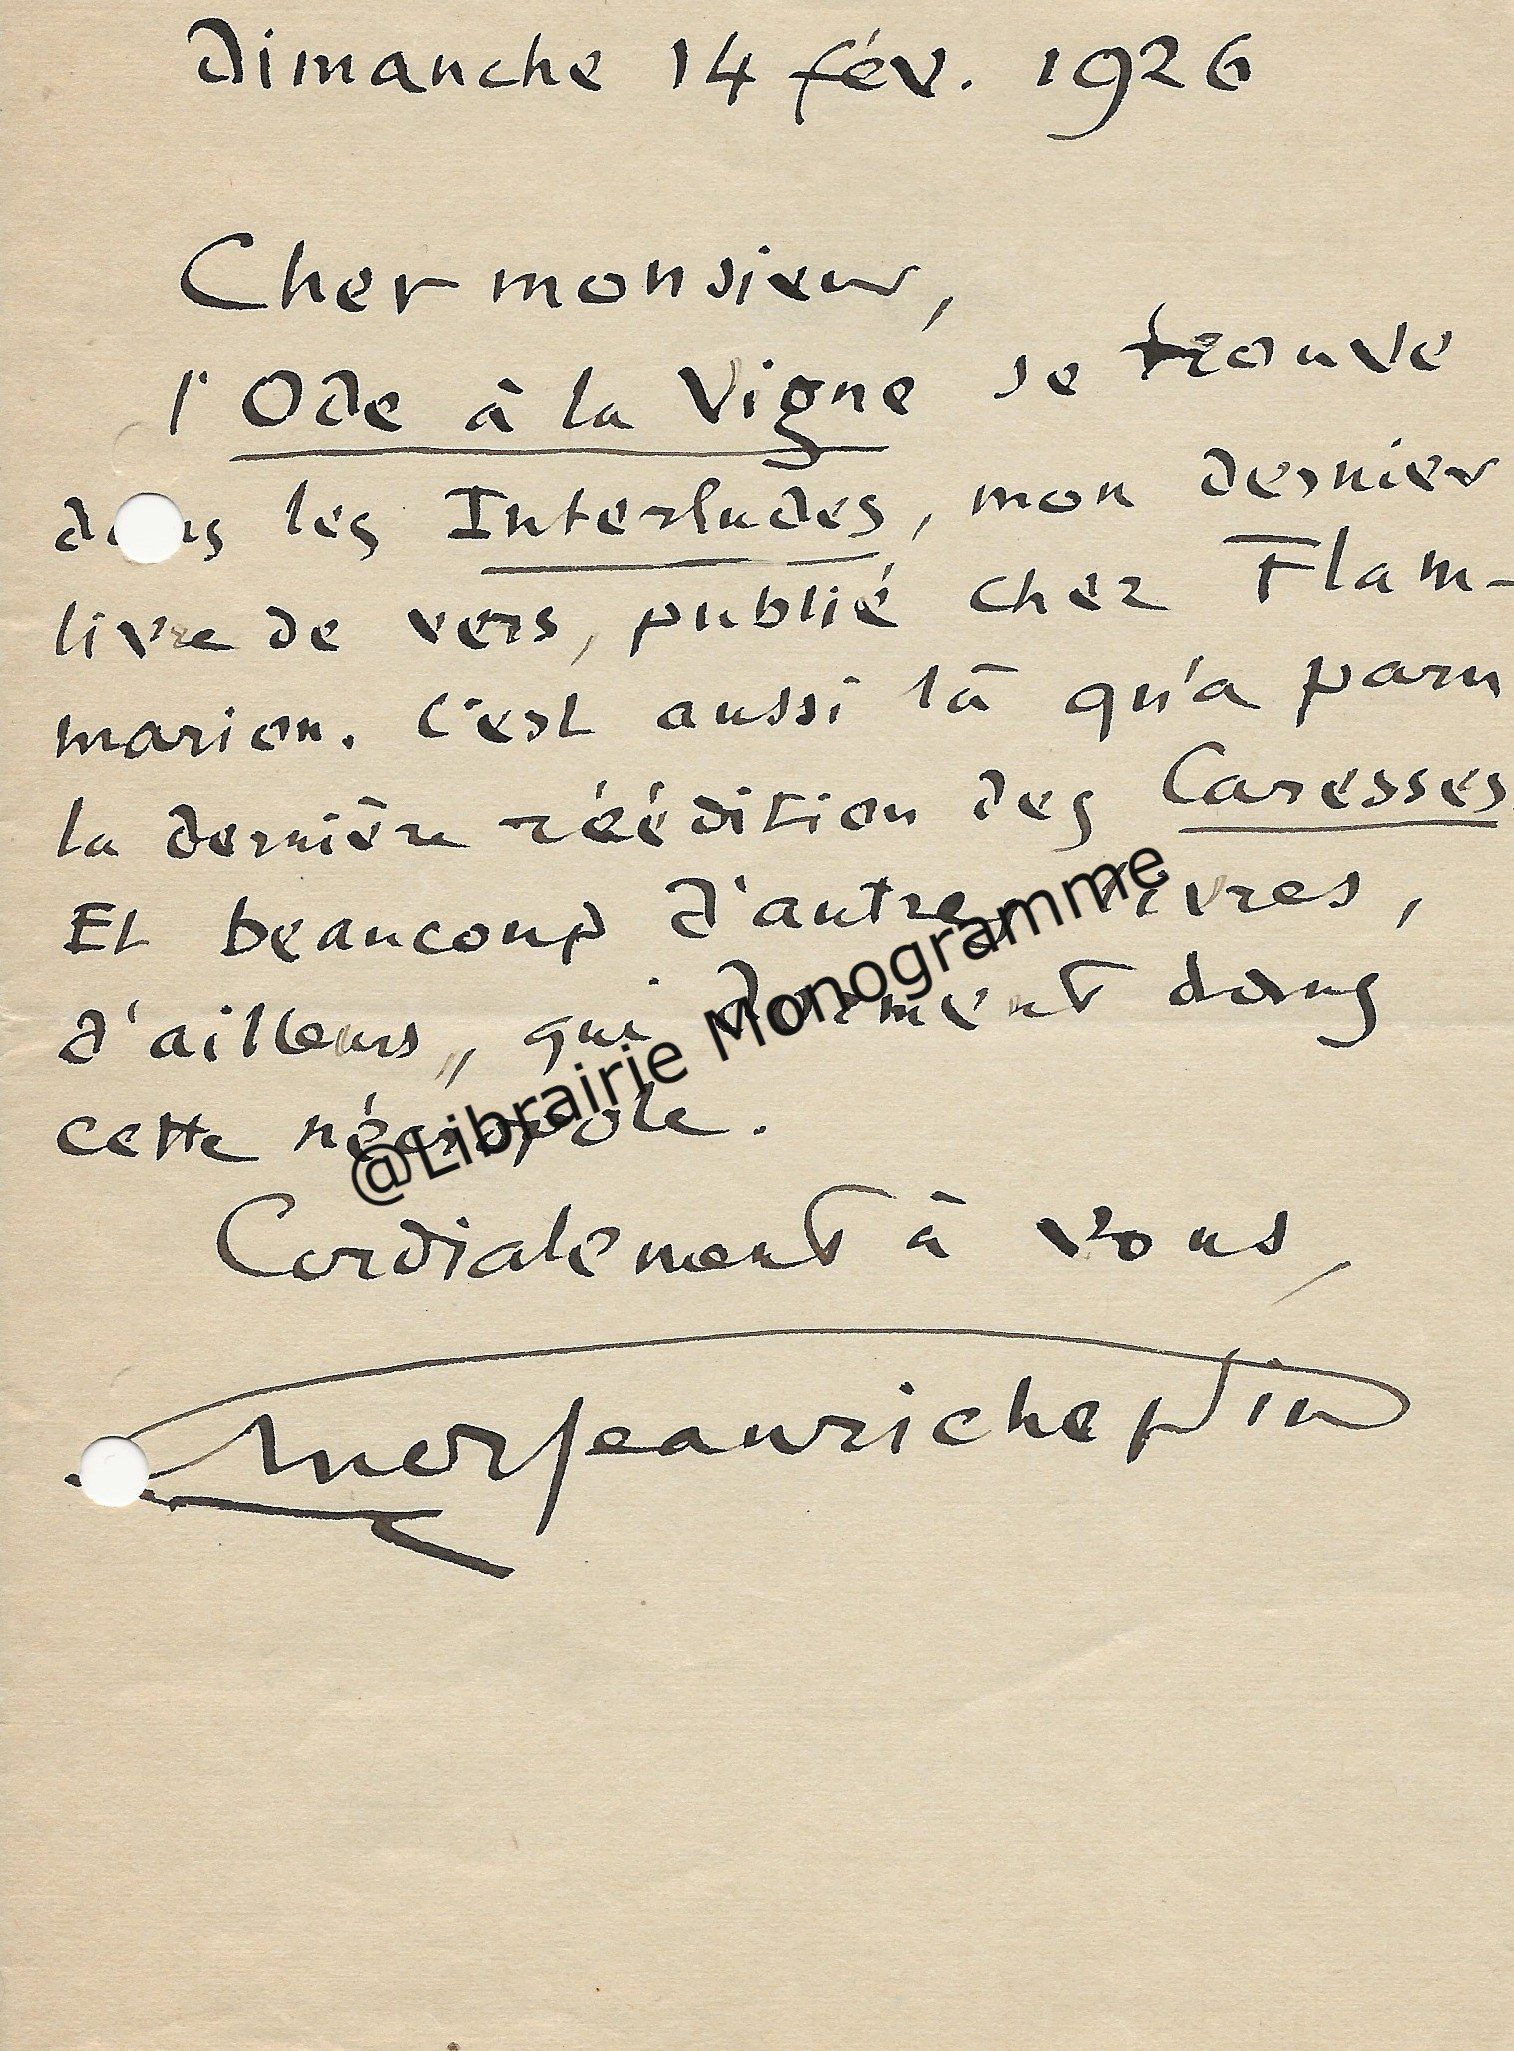 Dimanche 14 fév. 1926
Cher monsieur,
l'Ode à la Vigne se trouve
dans les Interludes, mon dernier
livre de vers, publié chez Flam-
marion. C'est aussi là qu'a paru
la dernière réédition des Caresses.
Et beaucoup d'autres livres,
d'ailleurs, qui dorment dans
cette nécropole.
Cordialement à vous,
Jean richepin
@Librairie Monogramme